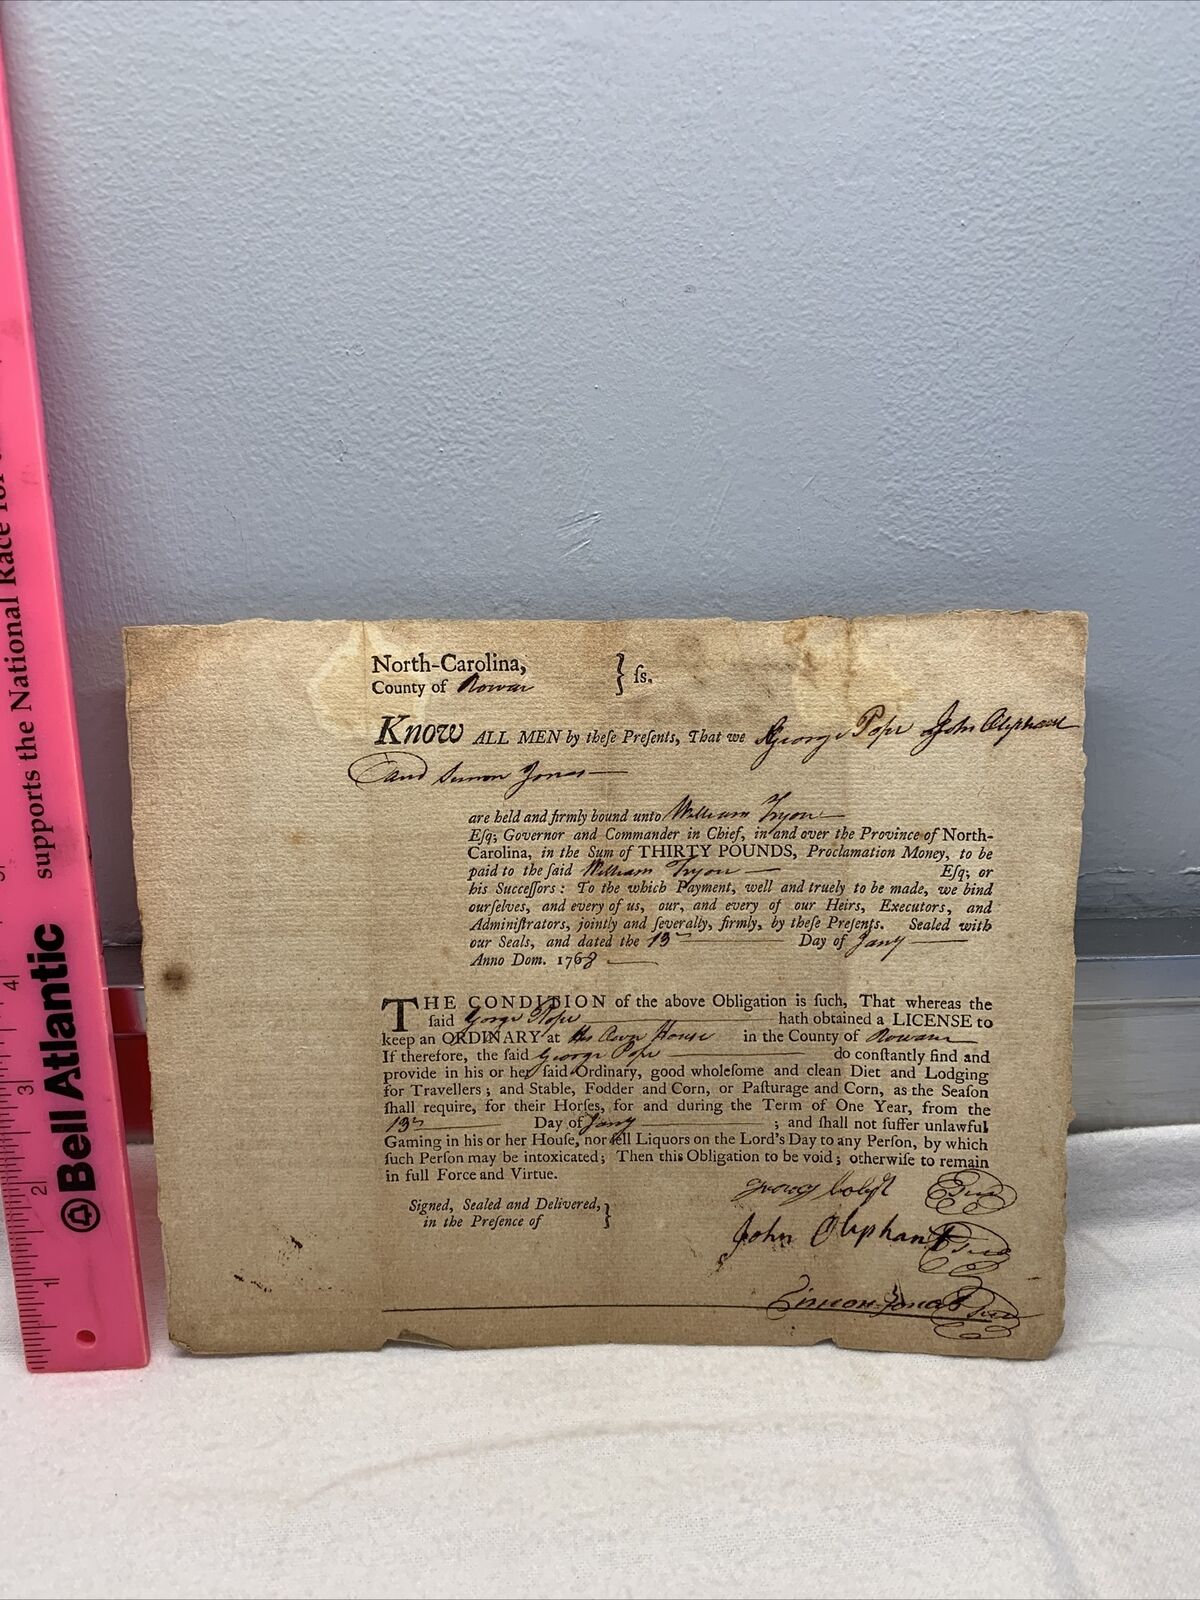 supports the National Race for
Bell Atlantic
1
2
3
4
North-Carolina,
County of Rowan } ſs.
Know ALL MEN by theſe Preſents, That we George Pope John Oliphant
and Simon Jonas
are held and firmly bound unto William Tryon
Eſq; Governor and Commander in Chief, in and over the Province of North-
Carolina, in the Sum of THIRTY POUNDS, Proclamation Money, to be
paid to the ſaid William Tryon Eſq; or
his Succeſſors: To the which Payment, well and truely to be made, we bind
ourſelves, and every of us, our, and every of our Heirs, Executors, and
Adminiſtrators, jointly and ſeverally, firmly, by theſe Preſents. Sealed with
our Seals, and dated the 13 Day of Jany
Anno Dom. 1768
THE CONDITION of the above Obligation is ſuch, That whereas the
ſaid Gorge Pope hath obtained a LICENSE to
keep an ORDINARY at His Own House in the County of Rowan
If therefore, the ſaid George Pope do conſtantly find and
provide in his or her ſaid Ordinary, good wholeſome and clean Diet and Lodging
for Travellers; and Stable, Fodder and Corn, or Paſturage and Corn, as the Seaſon
ſhall require, for their Horſes, for and during the Term of One Year, from the
13 Day of Jany ; and ſhall not ſuffer unlawful
Gaming in his or her Houſe, nor ſell Liquors on the Lord's Day to any Perſon, by which
ſuch Perſon may be intoxicated; Then this Obligation to be void; otherwiſe to remain
in full Force and Virtue.
Signed, Sealed and Delivered,
in the Preſence of }
John Oliphant
Simon Jonas